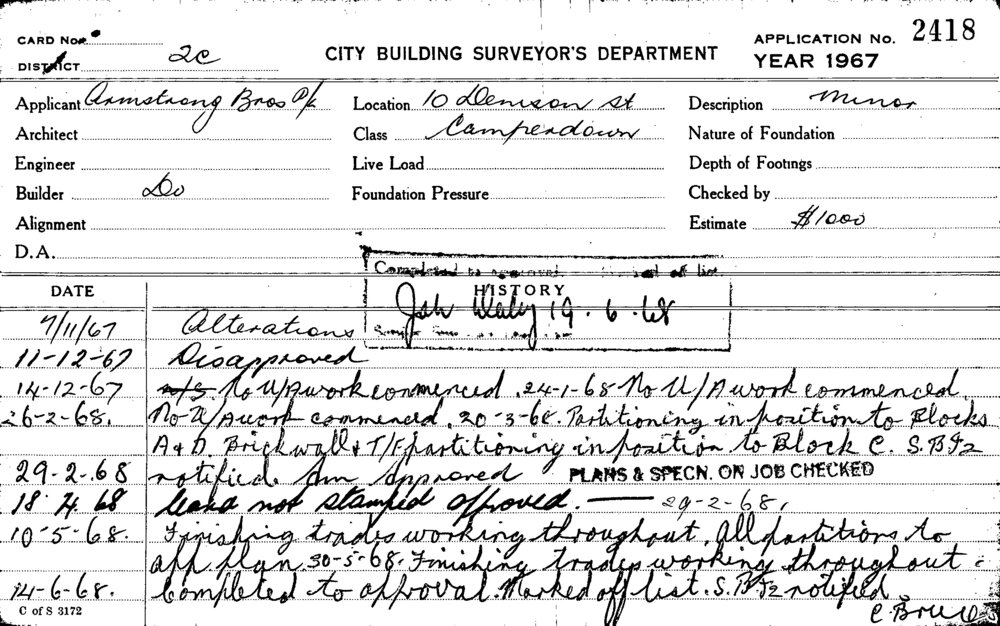 CARD No.
DISTRICT 2C
CITY BUILDING SURVEYOR'S DEPARTMENT
APPLICATION No. 2418
YEAR 1967
Applicant Armstrong Bros P/L
Location 10 Denison St
Description Minor
Architect
Class Camperdown
Nature of Foundation
Engineer
Live Load
Depth of Footings
Builder Do
Foundation Pressure
Checked by
Alignment
Estimate $1000
D.A.
Completed to approval. off list
DATE
HISTORY
19.6.68
7/11/67 Alterations
11-12-67 Disapproved
14-12-67 No U/A work commenced. 24-1-68 No U/A work commenced.
26-2-68. No U/A work commenced. 20-3-68. Partitioning in position to Blocks
A & D. Brickwall & T/F partitioning in position to Block C. S.B.I2
29-2-68 notified. Am Approved PLANS & SPECN. ON JOB CHECKED
18 4 68 not stamped approved. 29-2-68.
10-5-68. Finishing trades working throughout. All partitions to
app plan 30-5-68. Finishing trades working throughout
14-6-68. Completed to approval. Marked off list. S.B.I2 notified
C of S 3172
C. Bruce